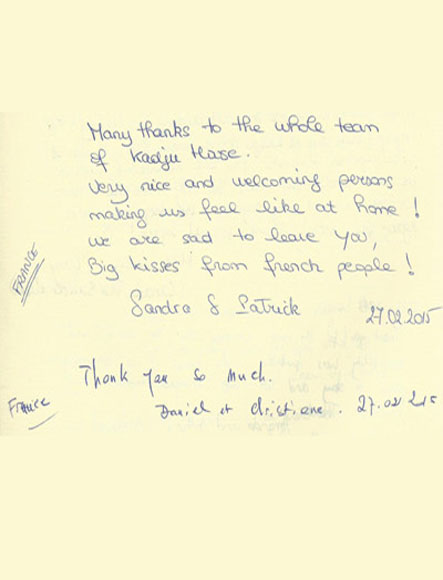 Many thanks to the whole team
of Kadju House.
Very nice and welcoming persons
making us feel like at home !
we are sad to leave you,
Big kisses from french people !
FRANCE
Sandra & Patrick 27.02.2015
Thank you so much.
France
Daniel et Christiane. 27.02 2015